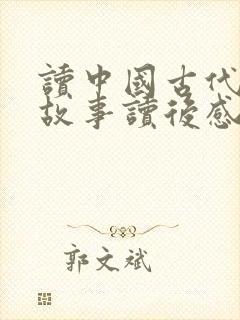 讀中國古代
故事讀後感
郭文斌